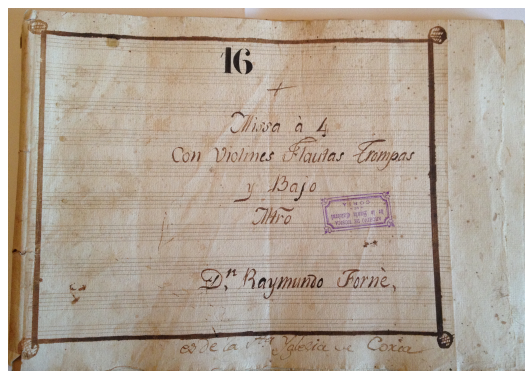 16
Missa à 4
Con Violines Flautas Trompas
y Bajo
Mtrô
D.ⁿ Raymundo Fornè,
es de la Sta Yglesia de Coria